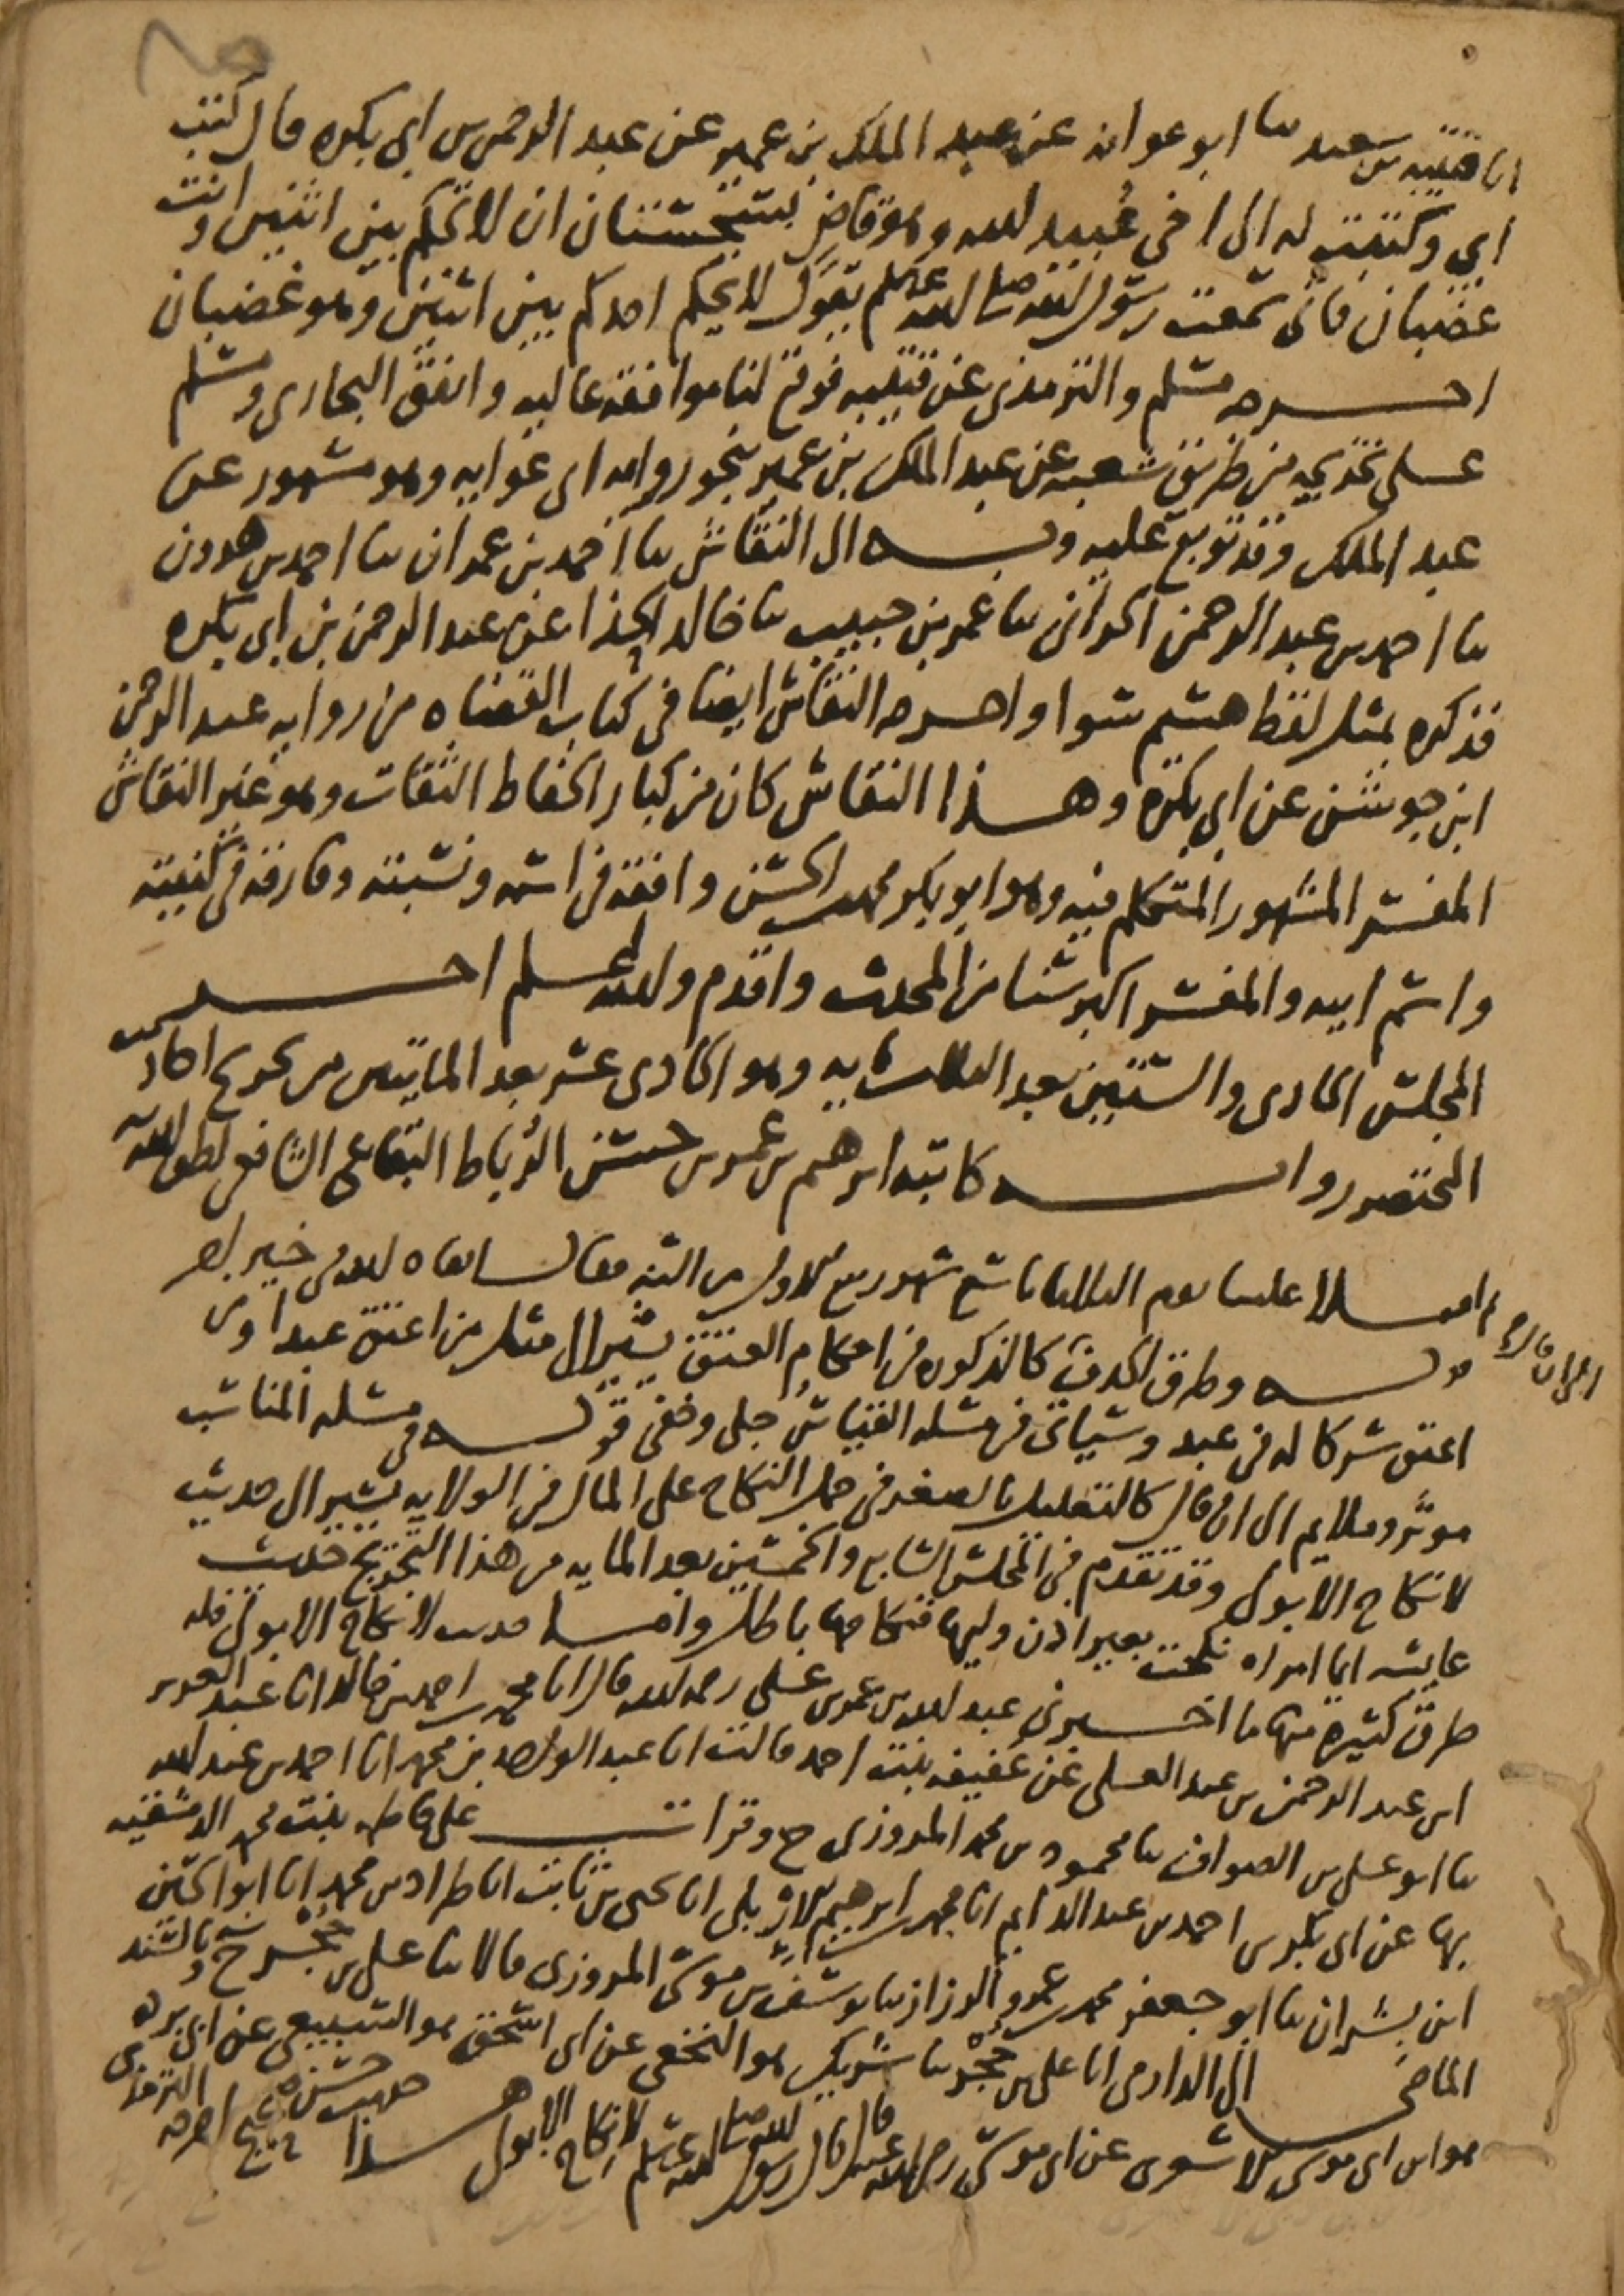 انا قتيبة بن سعيد ثنا ابو عوانه عن عبد الملك بن عمير عن عبد الرحمن بن ابي بكره قال كتب
ابي وكتبت له الى اخي عبيد الله وهو قاض بسجستان ان لا تحكم بين اثنين وانت
غضبان فاني سمعت رسول الله صلى الله عليه وسلم يقول لا يحكم احدكم بين اثنين وهو غضبان
اخرجه مسلم والترمذي عن قتيبه فوقع لنا موافقة عاليه واتفق البخاري ومسلم
على تخريجه من طريق شعبه عن عبد الملك بن عمير بنحو رواية ابي عوانه وهو مشهور عن
عبد الملك وقد توبع عليه وبه الى النقاش ثنا احمد بن عمران ثنا احمد بن هرون
ثنا احمد بن عبد الرحمن الحراني ثنا عمر بن حبيب ثنا خالد الحذا عن عبد الرحمن بن ابي بكره
فذكره بمثل لفظ هشيم سوا واخرجه النقاش ايضا في كتاب القضاه من رواية عبد الرحمن
ابن جوشن عن ابي بكرة وهذا النقاش كان من كبار الحفاظ الثقات وهو غير النقاش
المفسر المشهور المتكلم فيه وهو ابو بكر محمد بن الحسن وافقه في اسمه ونسبته وفارقه في كنيته
واسم ابيه والمفسر اكبر سنا من المحدث واقدم والله اعلم اخر
المجلس الحادي والستين بعد الثلاث مايه وهو الحادي عشر بعد المايتين من تخريج احاديث
المختصر رواية كاتبه ابراهيم بن عمر بن حسن الرباط البقاعي الشافعي لطف الله به
ثم املا علينا يوم الثلاثا تاسع شهر ربيع الاول من السنه فقال ابقاه الله في خير
قوله وطرق الحذف كالذكوره في احكام العتق يشير الى مثل من اعتق عبدا ومن
اعتق شركا له في عبد وسياتي في مسله القياس جلي وخفي قوله في مسله المناسب
موثر وملايم الى ان قال كالتعليل بالصغر في حمل النكاح على المال في الولايه يشير الى حديث
لا نكاح الا بولي وقد تقدم في المجلس السابع والخمسين بعد المايه من هذا التخريج حديث
عايشه ايما امراه نكحت بغير اذن وليها فنكاحها باطل واما حديث لا نكاح الا بولي فله
طرق كثيرة منها ما اخبرني عبد الله بن عمر بن علي رحمه الله قال انا محمد بن احمد بن خالد انا عبد العزيز
ابن عبد الرحمن بن عبد العلي عن عفيفه بنت احمد قالت انا عبد الواحد بن محمد انا احمد بن عبد الله
ثنا ابو علي بن الصواف ثنا محمود بن محمد المروزي ح وقرات على فاطمه بنت محمد الدمشقيه
بها عن ابي بكر بن احمد بن عبد الدايم انا محمد بن ابراهيم الاربلي انا يحيى بن ثابت انا طراد بن محمد انا ابو الحسين
ابن بشران ثنا ابو جعفر محمد بن عمرو الرزاز ثنا يوسف بن موسى المروزي قالا ثنا علي بن حجر ح وبالسند
الماضي الى الدارمي انا علي بن حجر ثنا شريك هو النخعي عن ابي اسحق هو السبيعي عن ابي برده
هو ابن ابي موسى الاشعري عن ابي موسى رضي الله عنه قال قال رسول الله صلى الله عليه وسلم لا نكاح الا بولي هذا حديث حسن صحيح اخرجه الترمذي